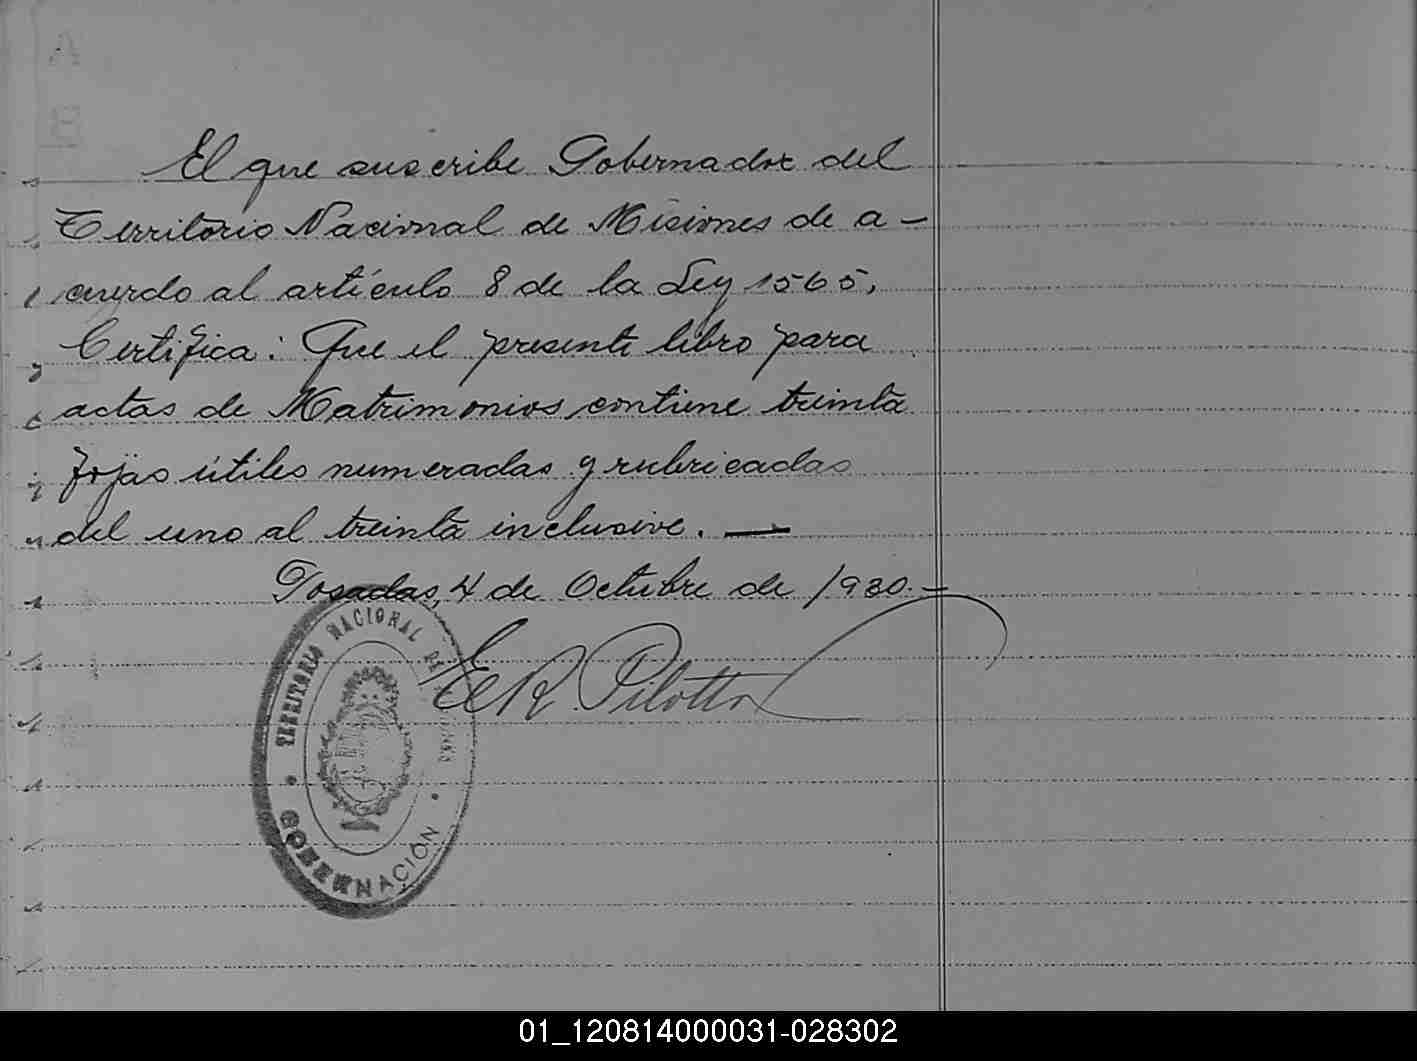 El que suscribe Gobernador del
Territorio Nacional de Misiones de a-
cuerdo al artículo 8 de la Ley 1565,
Certifica: Que el presente libro para
actas de Matrimonios contiene treinta
fojas útiles numeradas y rubricadas
del uno al treinta inclusive. —
Posadas, 4 de Octubre de 1930.-
E R Pilotto
TERRITORIO NACIONAL DE MISIONES
GOBERNACIÓN
01_120814000031-028302